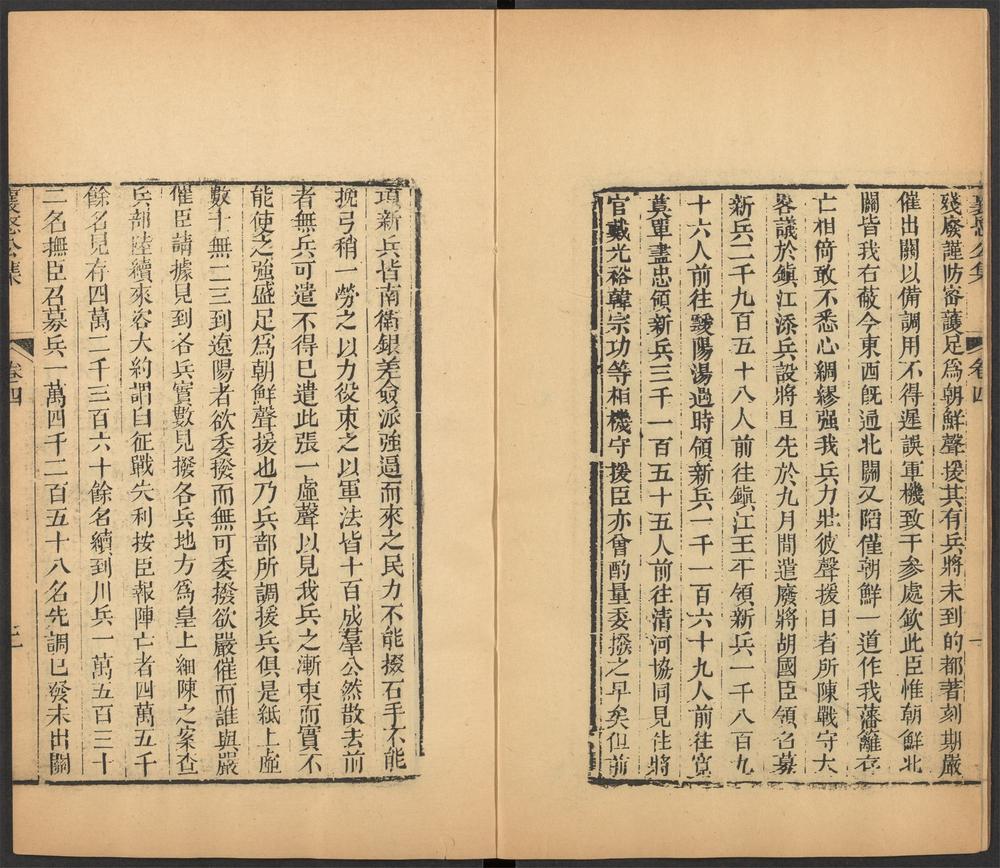 襄愍公集 卷四
殘廢謹防密護足爲朝鮮聲援其有兵將未到的都著刻期嚴
催出關以備調用不得遲誤軍機致干參處欽此臣惟朝鮮北
關皆我右蔽今東西旣逼北關又陷僅朝鮮一道作我藩籬存
亡相倚敢不悉心綢繆强我兵力壯彼聲援日者所陳戰守大
畧議於鎭江添兵設將旦先於九月間遣廢將胡國臣領召募
新兵二千九百五十八人前往鎭江王平領新兵一千八百九
十六人前往靉陽湯過時領新兵一千一百六十九人前往寬
奠單盡忠領新兵三千一百五十五人前往清河協同見住將
官戴光裕韓宗功等相機守援臣亦曾酌量委撥之早矣但前
項新兵皆南衛銀差僉派強逼而來之民力不能掇石手不能
挽弓稍一勞之以力役束之以軍法皆十百成羣公然散去前
者無兵可遣不得已遣此張一虛聲以見我兵之漸東而實不
能使之強盛足爲朝鮮聲援也乃兵部所調援兵俱是紙上虛
數十無二三到遼陽者欲委撥而無可委撥欲嚴催而誰與嚴
催臣請據見到各兵實數見撥各兵地方爲皇上細陳之案查
兵部陸續來咨大約謂自征戰失利按臣報陣亡者四萬五千
餘名見存四萬二千三百六十餘名續到川兵一萬五百三十
三名撫臣召募兵一萬四千二百五十八名先調已發未出關
襄愍公集 卷四